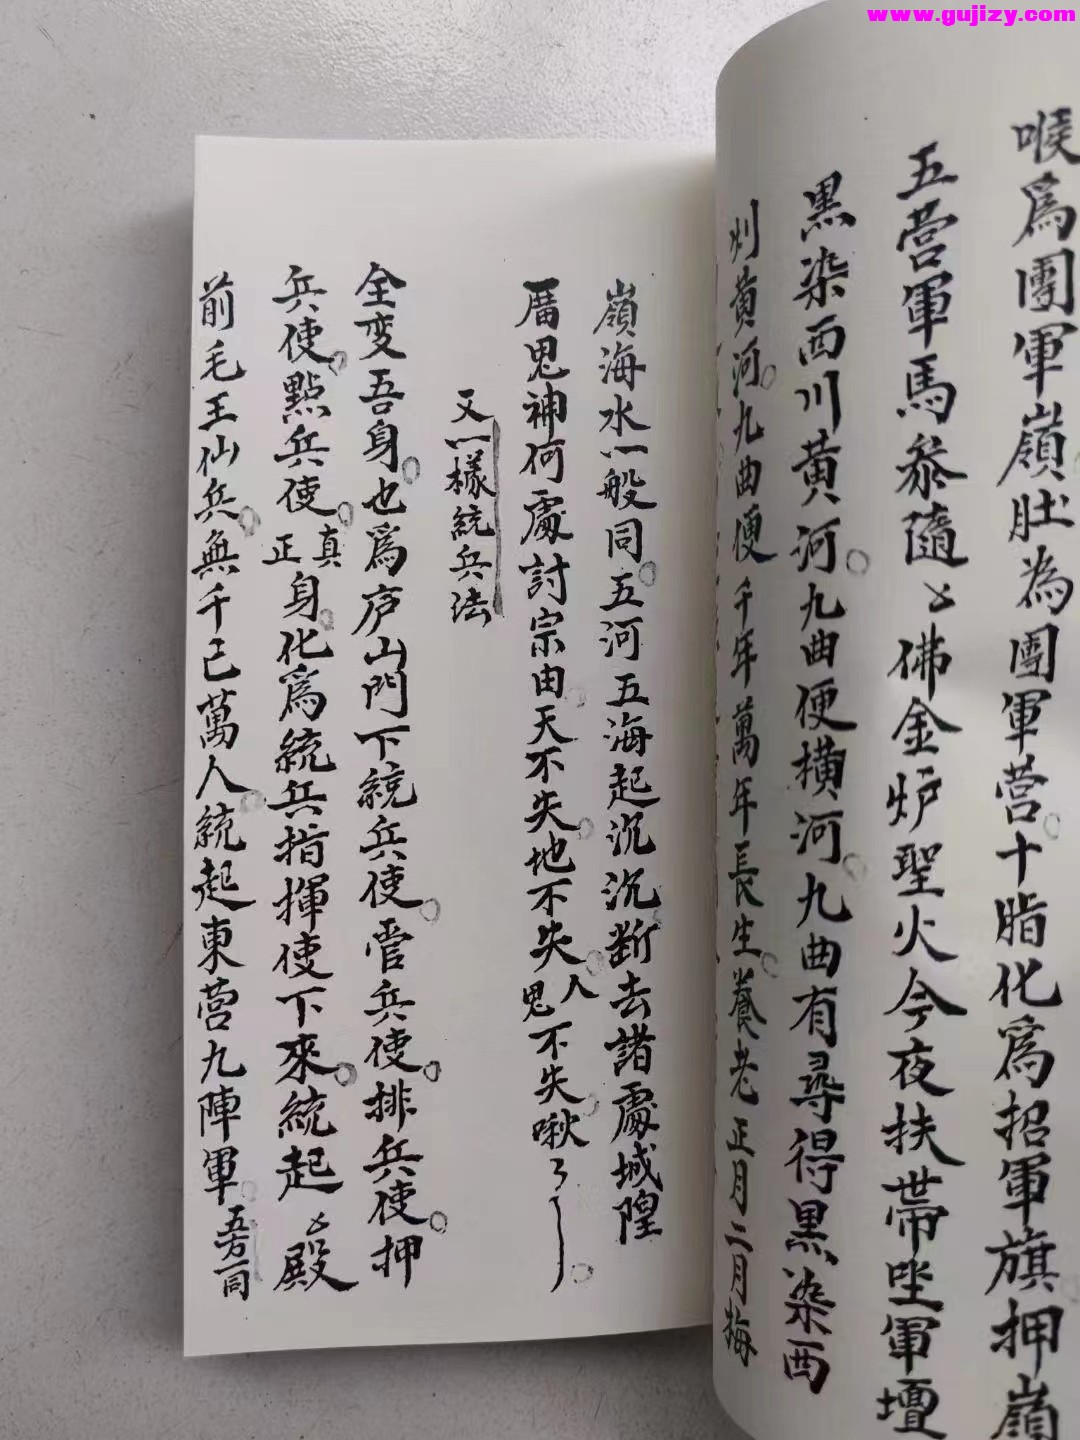 www.gujizy.com
喉為團軍嶺肚為團軍营十脂化為招軍旗押嶺
五营軍馬叅隨〻佛金炉聖火今夜扶帶坐軍壇
黑染西川黄河九曲便横河九曲有尋得黑染西
刘黄河九曲便千年萬年長生養老正月二月梅
嶺海水一般同五河五海起沉沉断去諸處城隍
鬼神何處討宗由天不失地不失人鬼不失啾
又一樣統兵法
全变吾身也為庐山門下統兵使管兵使排兵使押
兵使點兵使真正身化為統兵指揮使下來統起〻殿
前毛王仙兵無千已萬人統起東营九陣軍五方同